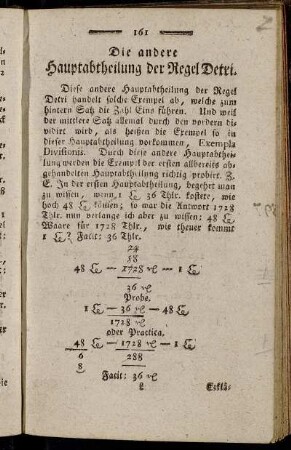 161
Die andere
Hauptabtheilung der Regel Detri.
Diese andere Hauptabtheilung der Regel
Detri handelt solche Exempel ab, welche zum
hintern Satz die Zahl Eins führen. Und weil
der mittlere Satz allemal durch den vordern di-
vidirt wird, als heißen die Exempel so in
dieser Hauptabtheilung vorkommen, Exempla
Divisionis. Durch diese andere Hauptabthei-
lung werden die Exempel der ersten allbereits ab-
gehandelten Hauptabtheilung richtig probirt. Z.
E. In der ersten Hauptabtheilung, begehrt man
zu wissen, wenn 1 ℔ 36 Thlr. kostete, wie
hoch 48 ℔ kämen; so war die Antwort 1728
Thlr. nun verlange ich aber zu wissen: 48 ℔
Waare für 1728 Thlr., wie theuer kommt
1 ℔? Facit: 36 Thlr.
24
18
48 ℔ — 1728 — 1 ℔
36
Probe.
1 ℔ — 36 — 48 ℔
1728
oder Practica.
48 ℔ — 1728 — 1 ℔
6 288
8
Facit: 36
L Erklä-